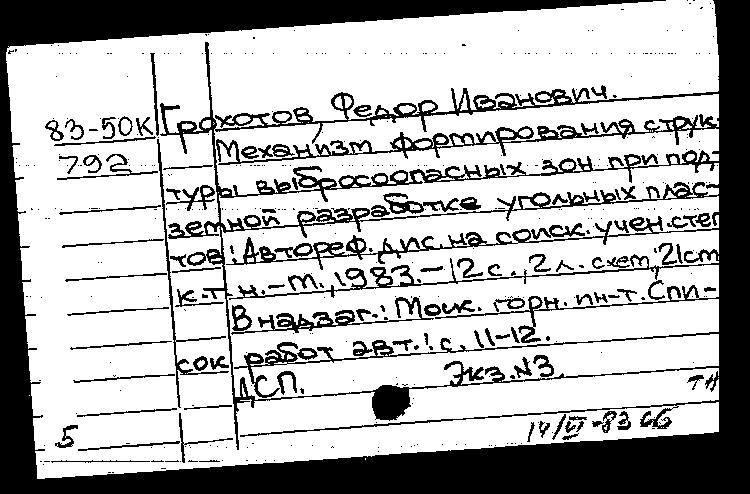 83-50К Грохотов, Федор Иванович.
792 Механизм формирования струк-
туры выбросоопасных зон при под-
земной разработке угольных плас-
тов: Автореф. дис. на соиск. учен. степ
к. т. н. - М., 1983. - 12 с., 2 л. схем; 21 cm
В надзаг.: Моск. горн. ин-т. Спи-
сок работ авт.: с. 11-12.
ДСП. Экз. №3.
ТН
5 14/VI-83